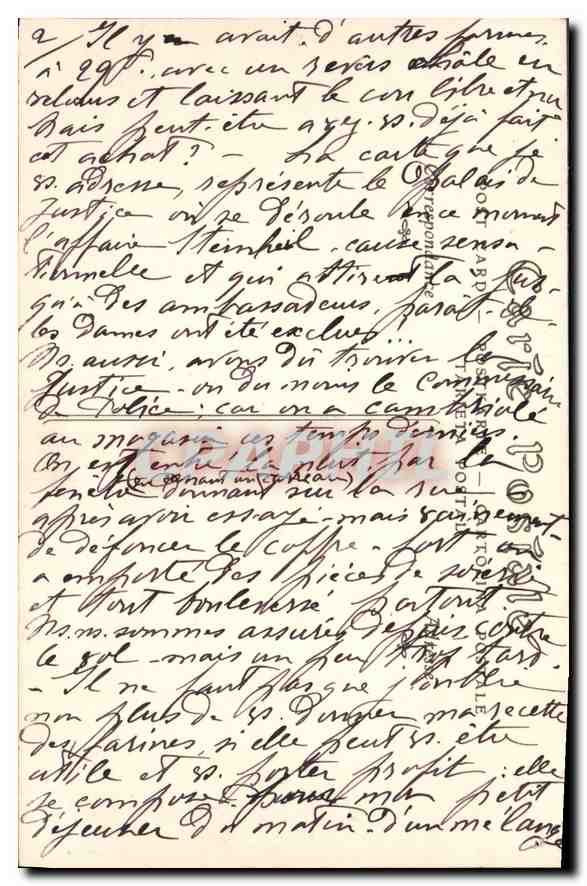 2/ Il y en avait d'autres formes,
à 29f. avec un revers châle en
velours et laissant le cou libre et nu
Mais peut-être avez-vs. déjà fait
cet achat? – La carte que je
vs. adresse, représente le Palais de
Justice où se déroule en ce moment
l'affaire Steinheil - cause sensa-
tionnelle et qui attire la jus-
qu'à des ambassadeurs, paraît-il -
les dames ont été exclues!...
Ns. aussi, avons dû trouver la
Justice - ou du moins le Commissaire
de Police; car on a cambriolé
au magasin ces temps derniers.
On est entré la nuit par la
(en cassant un carreau)
fenêtre donnant sur la rue
après avoir essayé - mais vainement -
de défoncer le coffre-fort on
a emporté des pièces de soierie
et tout bouleversé partout.
Ns. ns. sommes assurés depuis contre
le vol - mais un peu trop tard.
- Il ne faut pas que j'oublie
non plus de vs. donner ma recette
des farines, si elle peut vs. être
utile et vs. porter profit: elle
se compose pour mon petit
déjeuner du matin d'un mélange
Carte Postale
POST CARD — POSTKARTE — CARTOLINA POSTALE
TARJETA POSTAL
Correspondance
Adresse
CPAPHIL